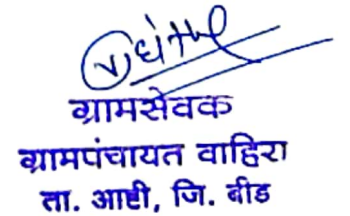 ग्रामसेवक
ग्रामपंचायत वाहिरा
ता. आष्टी, जि. बीड